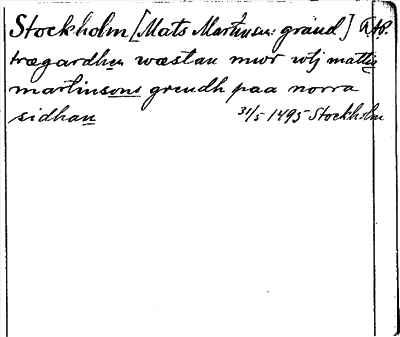 Stockholm [Mats Martinsens gränd] AtB.
trægardhen wæstan mwr wtj mattis
martinsons grendh paa norra
sidhan 31/5 1495 Stockholm